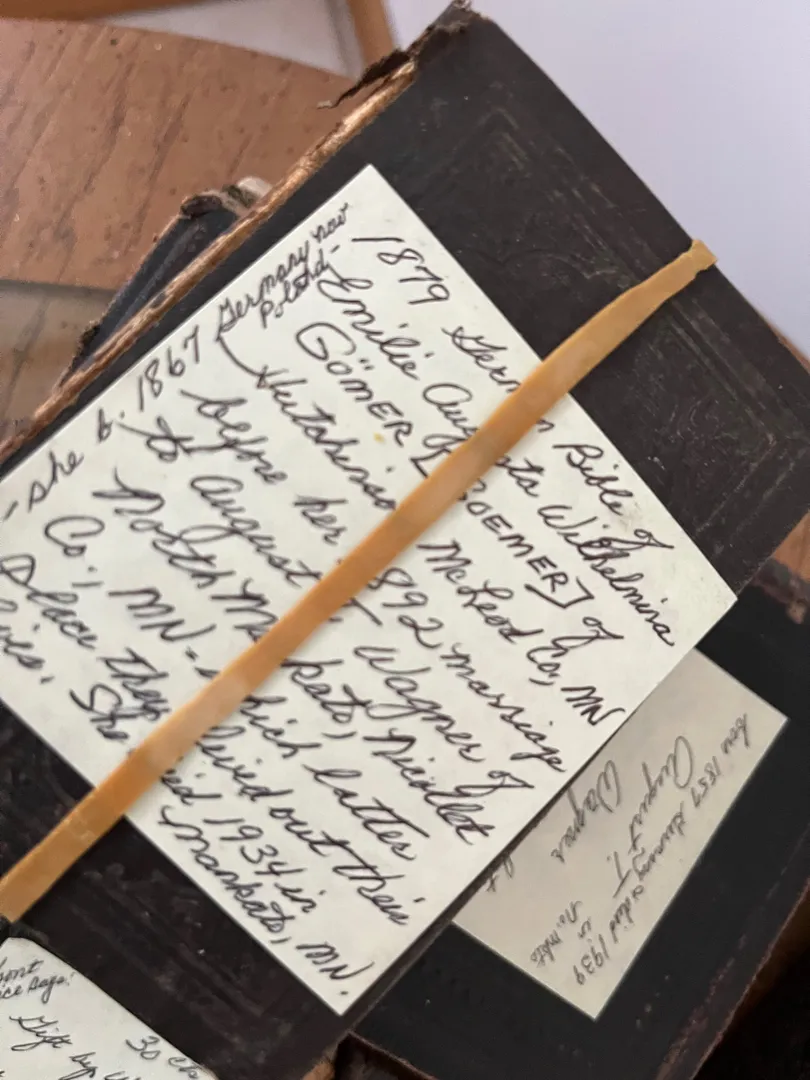 1879 German Bible of
Emilie Augusta Wilhelmina
GÖMER [ROEMER] of
Hutchinson McLeod Co, MN
before her 1892 marriage
to August T. Wagner of
North Mankato, Nicollet
Co., MN - which latter
place they lived out their
lives. She died 1934 in
Mankato, MN.
- she b. 1867 Germany now
Poland -
August T.
Wagner
born 1857 Germany & died 1939
in No. Mkto
ont
ce says:
Gift by
30